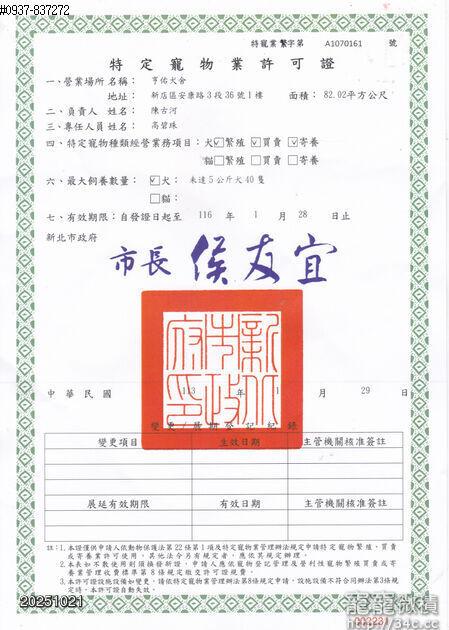 #0937-837272
特寵業繁字第 A1070161 號
特定寵物業許可證
一、營業場所名稱： 亨佑犬舍
地址： 新店區安康路3段36號1樓 面積： 82.02平方公尺
二、負責人姓名： 陳古河
三、專任人員姓名： 高碧珠
四、特定寵物種類經營業務項目： 犬☑繁殖 ☑買賣 ☑寄養
貓□繁殖 □買賣 □寄養
六、最大飼養數量： ☑犬： 未達5公斤犬40隻
□貓：
七、有效期限：自發證日起至 116 年 1 月 28 日止
新北市政府
市長 侯友宜
新北市政府印
中華民國 113 年 1 月 29 日
變更/展期登記紀錄
變更項目 生效日期 主管機關核准簽註
展延有效期限 有效日期 主管機關核准簽註
註：1.本證僅供申請人依動物保護法第22條第1項及特定寵物業管理辦法規定申請特定寵物繁殖、買賣
或寄養業許可使用，其他法令另有規定者，應依其規定辦理。
2.本表如不敷使用則須換發新證，申請人應依寵物登記管理及營利性寵物繁殖買賣或寄
養業管理收費標準第8條規定繳交許可證規費。
3.本許可證設施設備如變更，請依特定寵物業管理辦法第8條規定申請，設施設備不符合同辦法第3條規
定時，本許可證自動失效。
20251021
002231
龍龍微積
https://34c.cc